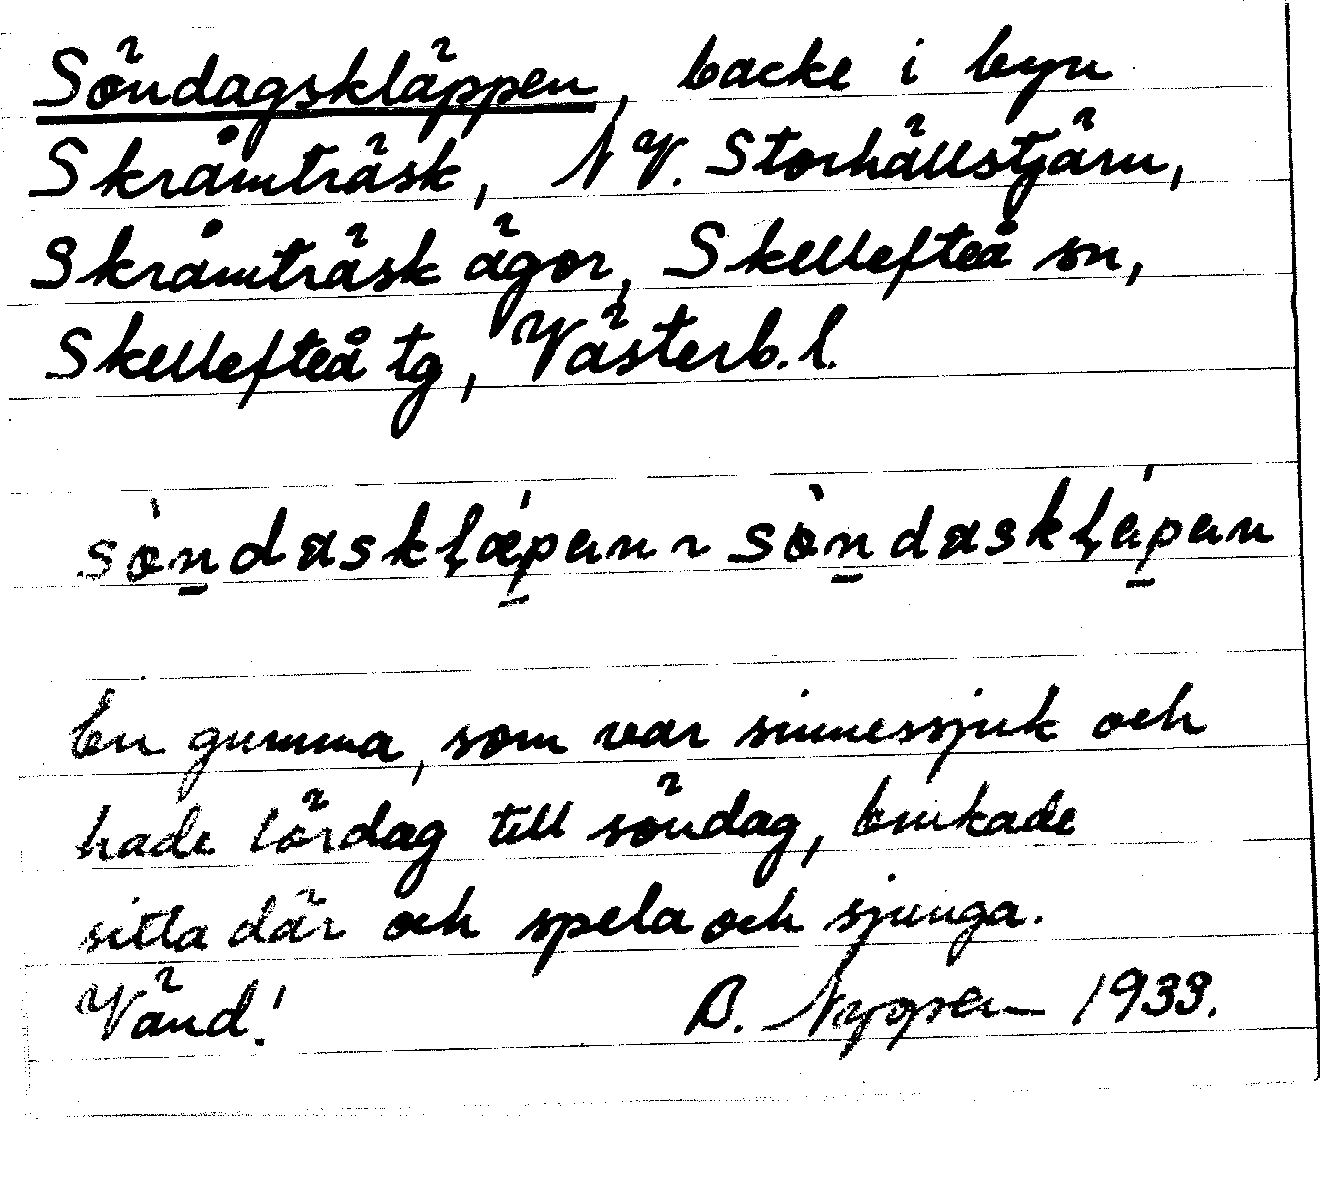 Söndagskläppen, backe i byn
Skråmträsk, NV. Storhällstjärn,
Skråmträsk ägor, Skellefteå sn,
Skellefteå tg, Västerb. l.
En gumma, som var sinnessjuk och
hade lördag till söndag, brukade
sitta där och spela och sjunga.
Vänd! B. 1933.